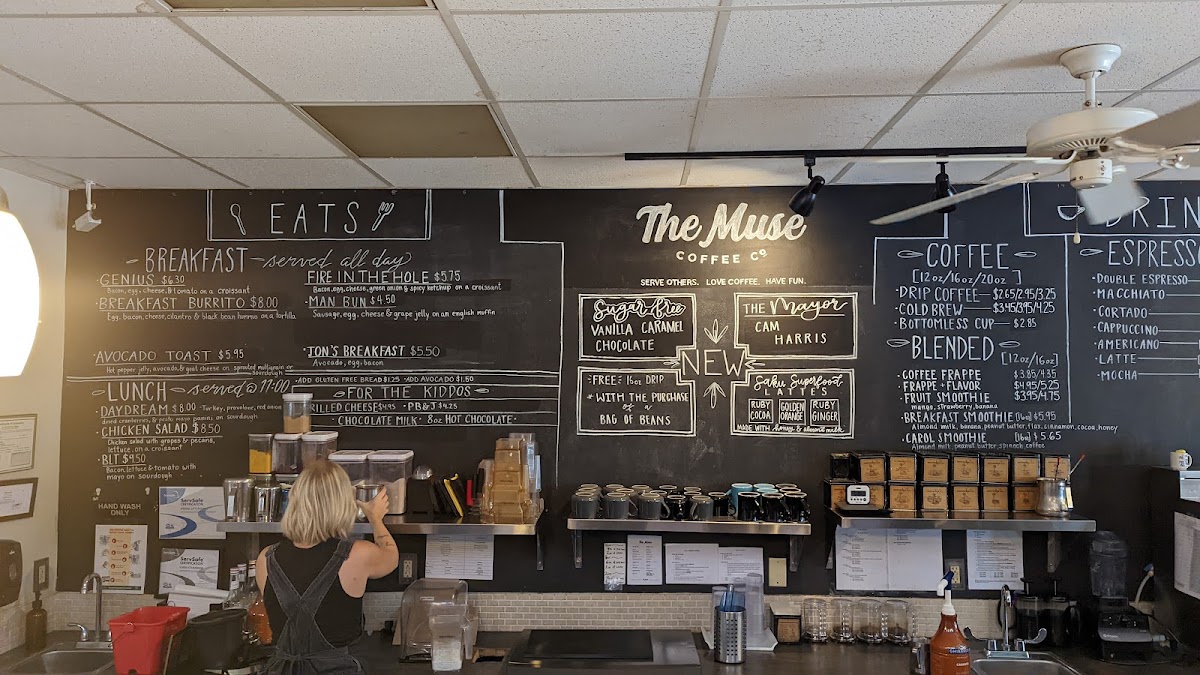 EATS
BREAKFAST served all day
GENIUS $6.30
Bacon, egg, cheese, & tomato on a croissant
BREAKFAST BURRITO $8.00
Egg, bacon, cheese, cilantro & black bean hummus on a tortilla
FIRE IN THE HOLE $5.75
Bacon, egg, cheese, green onion & spicy ketchup on a croissant
MAN BUN $4.50
Sausage, egg, cheese & grape jelly on an english muffin
AVOCADO TOAST $5.95
Hot pepper jelly, avocado, & goat cheese on sprouted multigrain or sourdough
JON'S BREAKFAST $5.50
Avocado, egg, bacon
·ADD GLUTEN FREE BREAD $1.25 ·ADD AVOCADO $1.50
LUNCH served @ 11:00
DAYDREAM $8.00 - Turkey, provolone, red onion
dried cranberries, & pesto mayo on sourdough
CHICKEN SALAD $8.50
Chicken salad with grapes & pecans, lettuce, on a croissant
BLT $9.50
Bacon, lettuce & tomato with mayo on sourdough
FOR THE KIDDOS
GRILLED CHEESE $4.95 · PB&J $4.25
CHOCOLATE MILK · 8oz HOT CHOCOLATE
HAND WASH
ONLY
ServSafe
CERTIFICATION
ServSafe
CERTIFICATION
The Muse
COFFEE Cº
SERVE OTHERS. LOVE COFFEE. HAVE FUN.
Sugar Free
VANILLA CARAMEL
CHOCOLATE
THE Mayor
CAM
HARRIS
NEW
FREE 16oz DRIP
* WITH THE PURCHASE
of a
BAG OF BEANS
Saku Superfood
LATTE'S
RUBY COCOA
GOLDEN ORANGE
RUBY GINGER
MADE WITH honey & almond milk
COFFEE
[12oz/16oz/20oz]
DRIP COFFEE $2.65/2.95/3.25
COLD BREW $3.45/3.95/4.25
BOTTOMLESS CUP $2.85
BLENDED
[12oz/16oz]
COFFEE FRAPPE $3.85/4.35
FRAPPE + FLAVOR $4.95/5.25
FRUIT SMOOTHIE $3.95/4.75
mango, strawberry, banana
BREAKFAST SMOOTHIE (16oz) $5.95
Almond milk, banana, peanut butter, flax, cinnamon, cocoa, honey
CAROL SMOOTHIE (16oz) $5.65
Almond milk, peanut butter, spinach, coffee
DRIN
ESPRESSO
DOUBLE ESPRESSO
MACCHIATO
CORTADO
CAPPUCCINO
AMERICANO
LATTE
MOCHA